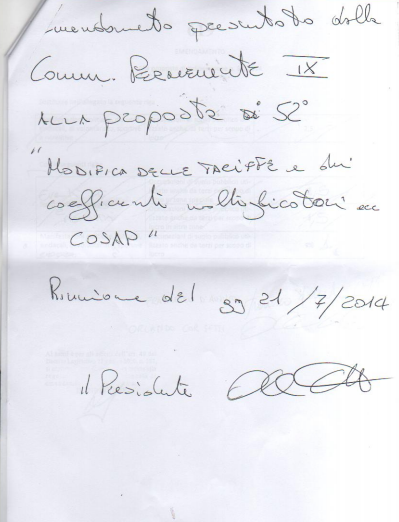 mendamento presentato dalla
Comm. PERMANENTE IX
ALLA PROPOSTA di 52°
"MODIFICA DELLE TARIFFE e dei
coefficienti moltiplicatori
COSAP"
Riunione del 21/7/2014
il Presidente